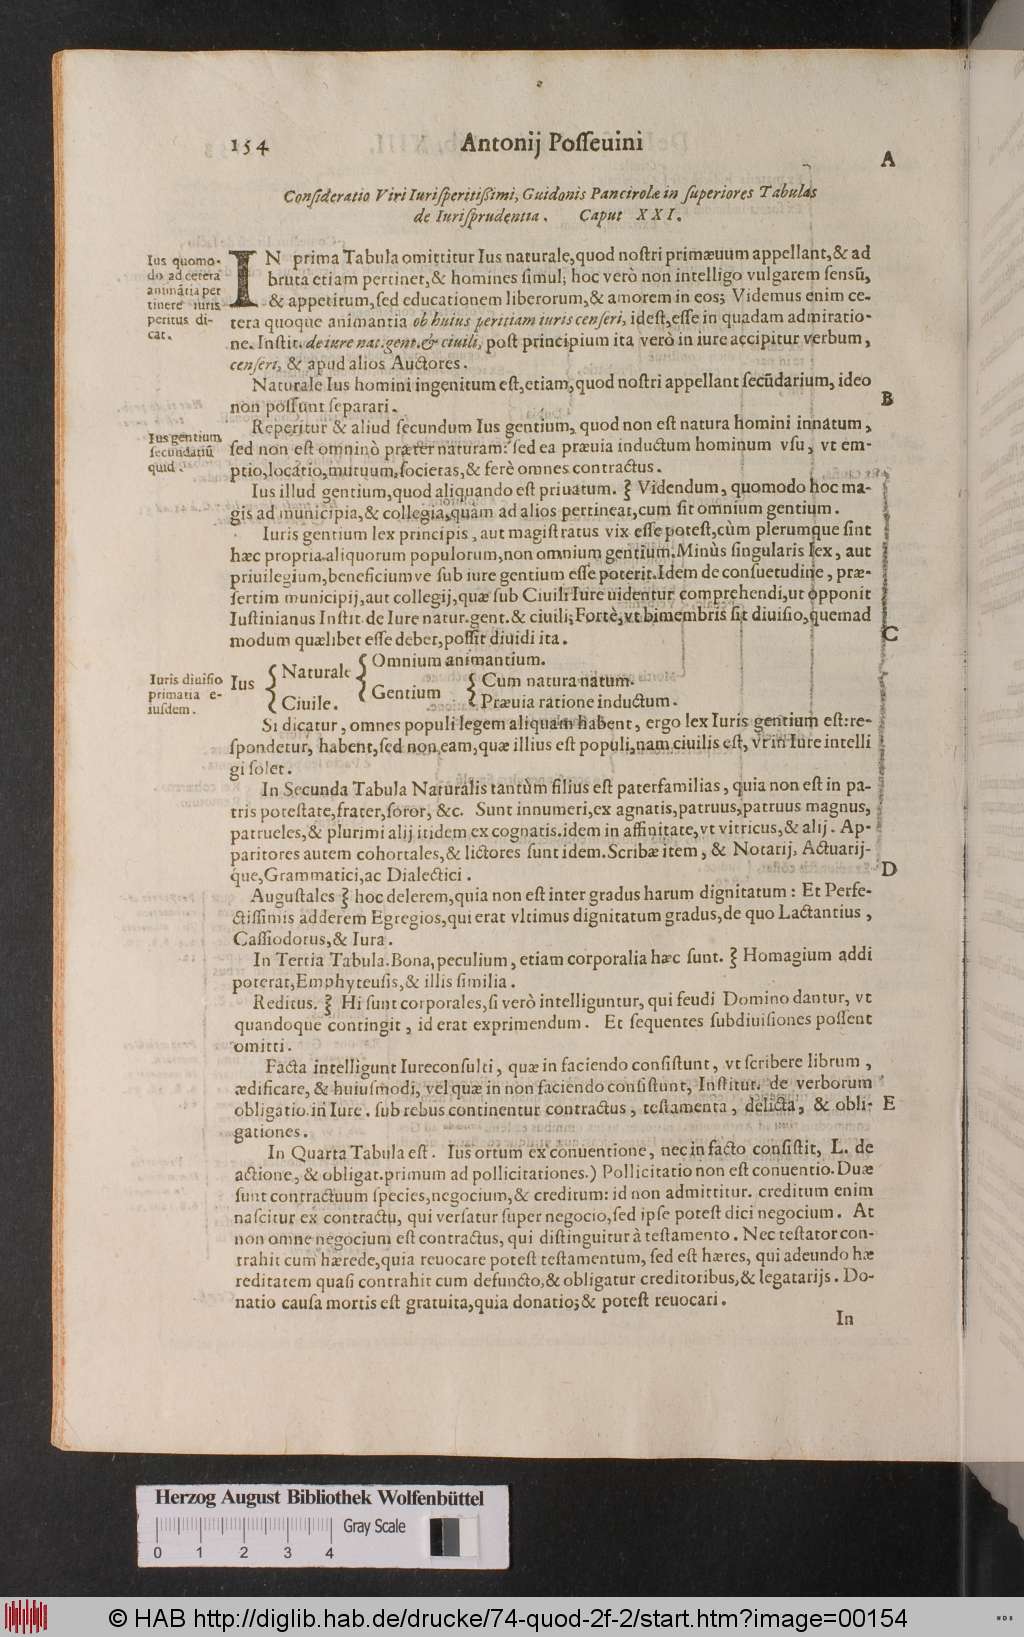 154 Antonij Posseuini
A
Consideratio Viri Iurisperitissimi, Guidonis Pancirolæ in superiores Tabulas
de Iurisprudentia. Caput XXI.
Ius quomo-
do ad cetera
animãtia per
tinere iuris
peritus di-
cat.
IN prima Tabula omittitur Ius naturale, quod nostri primæuum appellant, & ad
bruta etiam pertinet, & homines simul; hoc verò non intelligo vulgarem sensũ,
& appetitum, sed educationem liberorum, & amorem in eos; Videmus enim ce-
tera quoque animantia ob huius peritiam iuris censeri, idest, esse in quadam admiratio-
ne. Instit. de iure nat. gent. & ciuili, post principium ita verò in iure accipitur verbum,
censeri, & apud alios Auctores.
Naturale Ius homini ingenitum est, etiam, quod nostri appellant secũdarium, ideo
non possunt separari.
B
Ius gentium
secundariũ
quid.
Reperitur & aliud secundum Ius gentium, quod non est natura homini innatum,
sed non est omninò præter naturam: sed ea præuia inductum hominum vsu, vt em-
ptio, locatio, mutuum, societas, & ferè omnes contractus.
Ius illud gentium, quod aliquando est priuatum. ξ Videndum, quomodo hoc ma-
gis ad municipia, & collegia, quàm ad alios pertineat, cum sit omnium gentium.
Iuris gentium lex principis, aut magistratus vix esse potest, cùm plerumque sint
hæc propria aliquorum populorum, non omnium gentium. Minùs singularis lex, aut
priuilegium, beneficiumve sub iure gentium esse poterit. Idem de consuetudine, præ-
sertim municipij, aut collegij, quæ sub Ciuili Iure uidentur comprehendi, ut opponit
Iustinianus Instit. de Iure natur. gent. & ciuili; Fortè, vt bimembris sit diuisio, quemad
modum quælibet esse debet, possit diuidi ita.
C
Iuris diuisio
primaria e-
iusdem.
Ius { Naturale { Omnium animantium.
Gentium { Cum natura natum.
Præuia ratione inductum.
Ciuile.
Si dicatur, omnes populi legem aliquam habent, ergo lex Iuris gentium est: re-
spondetur, habent, sed non eam, quæ illius est populi, nam ciuilis est, vt in Iure intelli
gi solet.
In Secunda Tabula Naturalis tantùm filius est paterfamilias, quia non est in pa-
tris potestate, frater, soror, &c. Sunt innumeri, ex agnatis, patruus, patruus magnus,
patrueles, & plurimi alij itidem ex cognatis. idem in affinitate, vt vitricus, & alij. Ap-
paritores autem cohortales, & lictores sunt idem. Scribæ item, & Notarij, Actuarij-
que, Grammatici, ac Dialectici.
D
Augustales ξ hoc delerem, quia non est inter gradus harum dignitatum: Et Perfe-
ctissimis adderem Egregios, qui erat vltimus dignitatum gradus, de quo Lactantius,
Cassiodorus, & Iura.
In Tertia Tabula. Bona, peculium, etiam corporalia hæc sunt. ξ Homagium addi
poterat, Emphyteusis, & illis similia.
Reditus. ξ Hi sunt corporales, si verò intelliguntur, qui feudi Domino dantur, vt
quandoque contingit, id erat exprimendum. Et sequentes subdiuisiones possent
omitti.
Facta intelligunt Iureconsulti, quæ in faciendo consistunt, vt scribere librum,
ædificare, & huiusmodi, vel quæ in non faciendo consistunt, Institut. de verborum
obligatio. in Iure. sub rebus continentur contractus, testamenta, delicta, & obli-
gationes.
E
In Quarta Tabula est. Ius ortum ex conuentione, nec in facto consistit, L. de
actione, & obligat. primum ad pollicitationes.) Pollicitatio non est conuentio. Duæ
sunt contractuum species, negocium, & creditum: id non admittitur. creditum enim
nascitur ex contractu, qui versatur super negocio, sed ipse potest dici negocium. At
non omne negocium est contractus, qui distinguitur à testamento. Nec testator con-
trahit cum hærede, quia reuocare potest testamentum, sed est hæres, qui adeundo hæ
reditatem quasi contrahit cum defuncto, & obligatur creditoribus, & legatarijs. Do-
natio causa mortis est gratuita, quia donatio; & potest reuocari.
In
Herzog August Bibliothek Wolfenbüttel
Gray Scale
0 1 2 3 4
© HAB http://diglib.hab.de/drucke/74-quod-2f-2/start.htm?image=00154